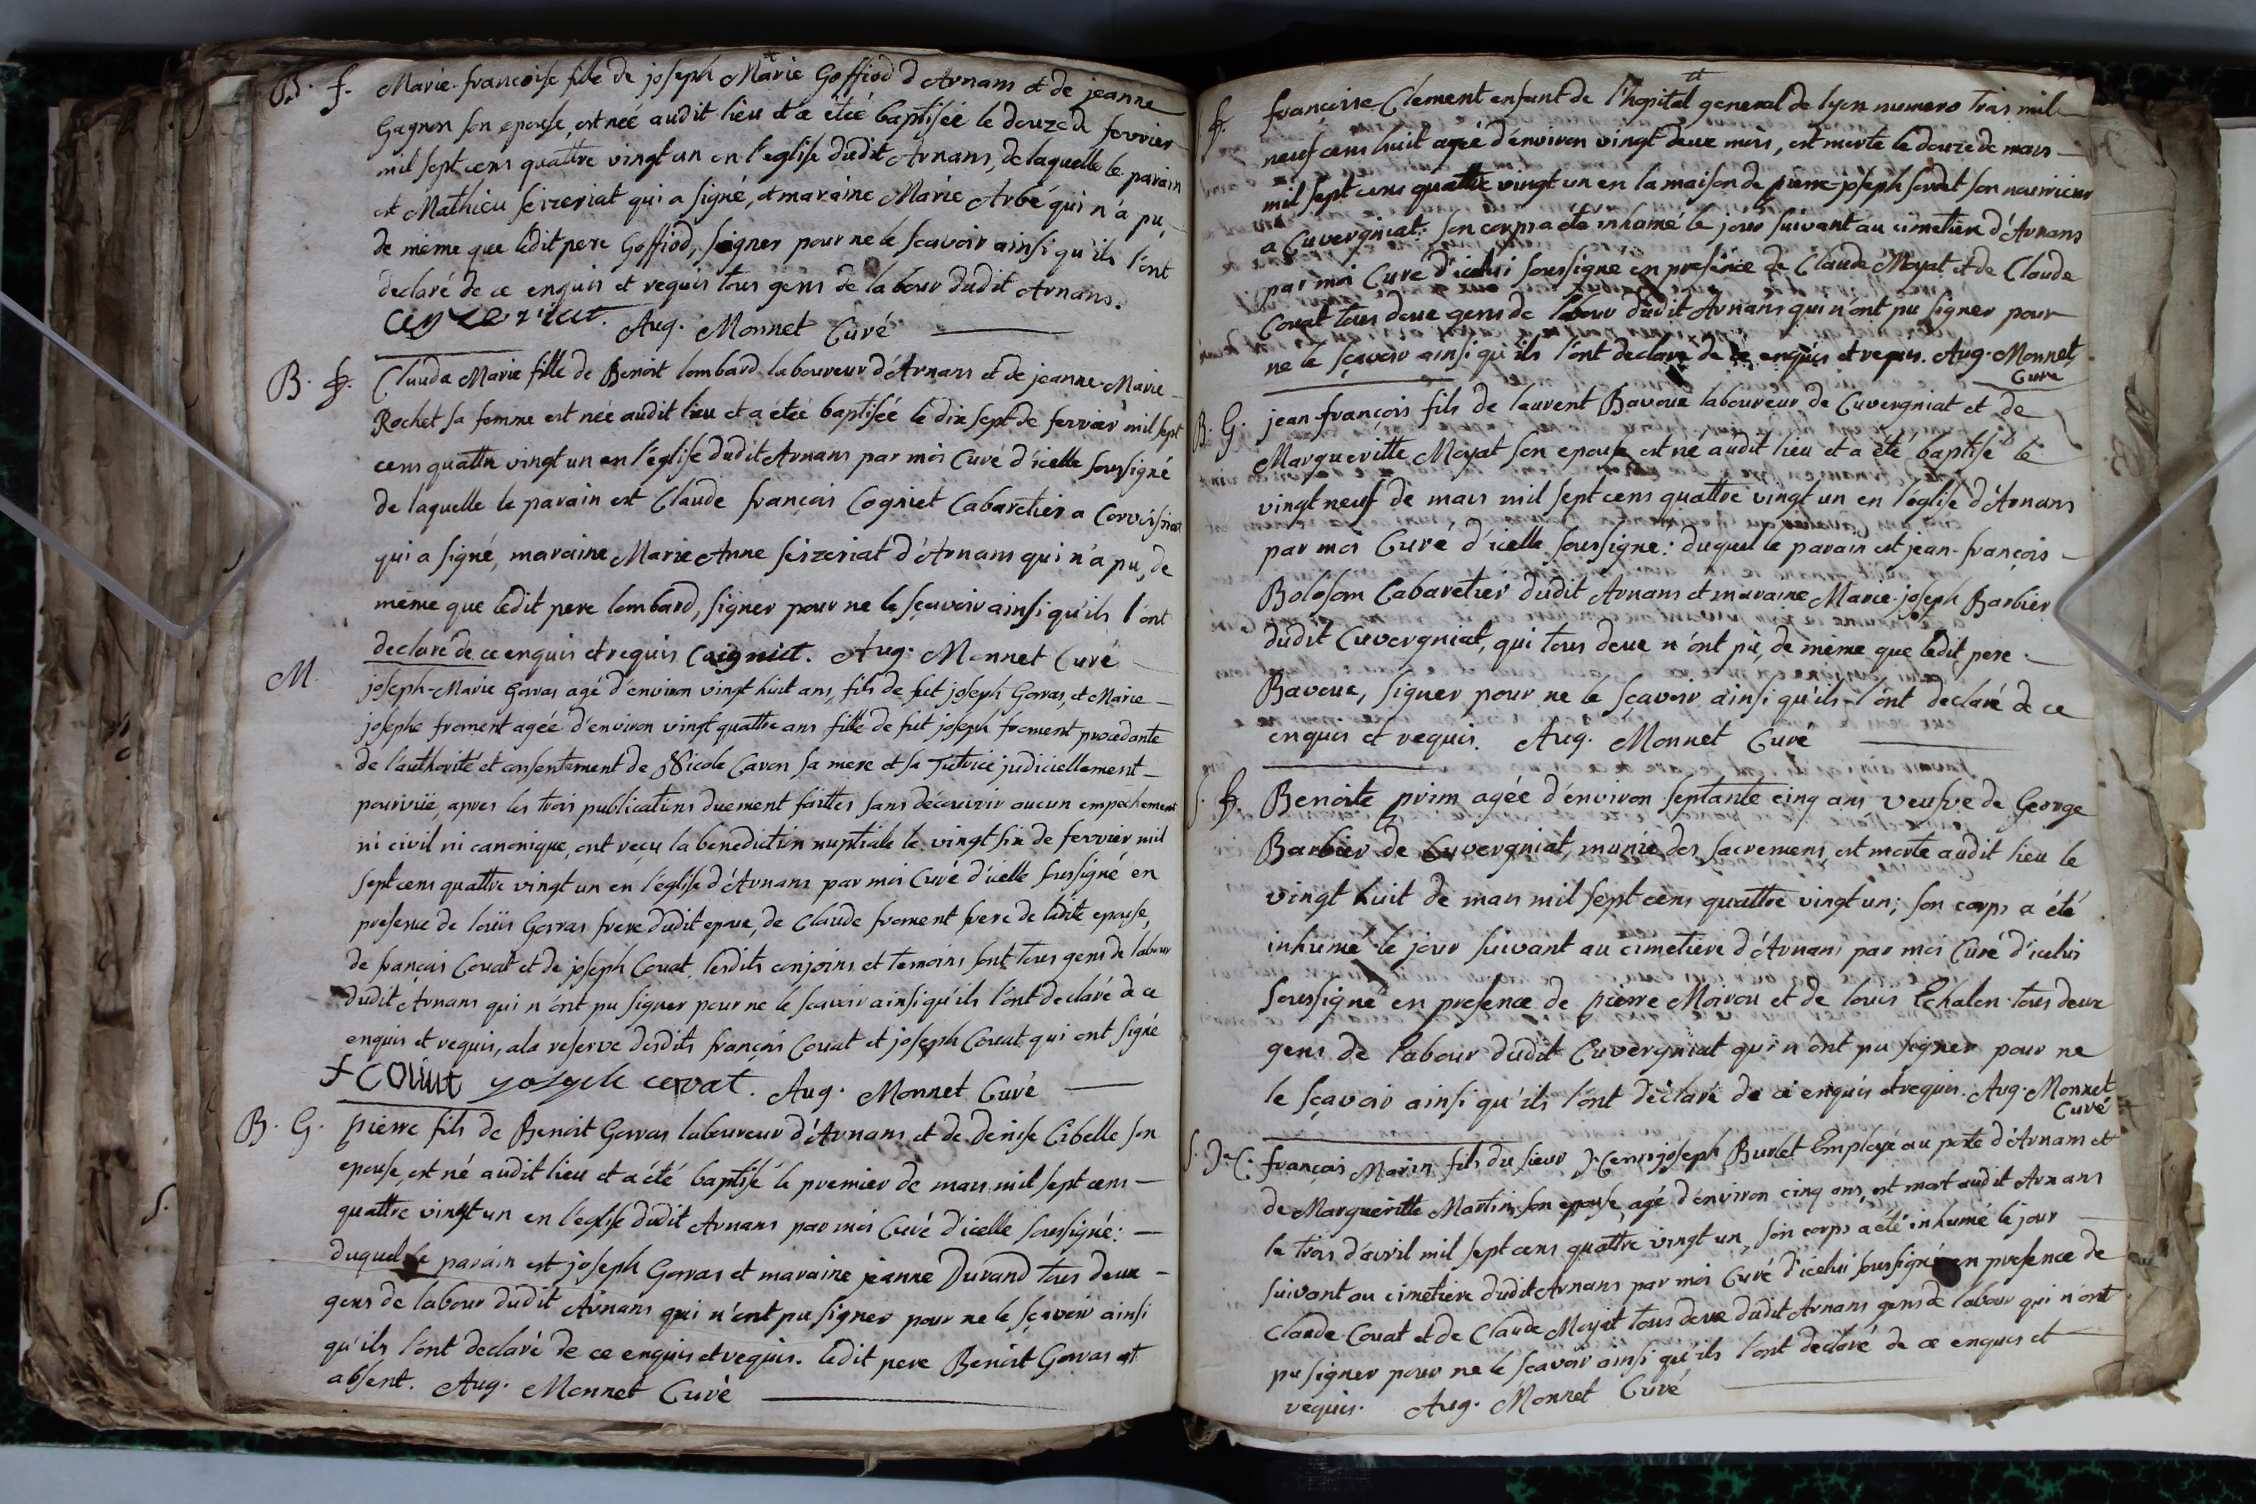 B. f. Marie-francoise fille de joseph Marie Goffiod d'Arnans et de jeanne
Gagnon son epouse, est née audit lieu et a étée baptisée le douze de fevrier
mil sept cens quattre vingt un en l'eglise dudit Arnans, de laquelle le parain
est Mathieu Seizeriat qui a signé, et maraine Marie Arbé qui n'a pu,
de même que ledit pere Goffiod, signer pour ne le sçavoir ainsi qu'ils l'ont
declaré de ce enquis et requis tous gens de labour dudit Arnans.
Aug. Monnet Curé
B. f. Clauda Marie fille de Benoit lombard laboureur d'Arnans et de jeanne-Marie
Rochet sa femme est née audit lieu et a étée baptisée le dix sept de fevrier mil sept
cens quattre vingt un en l'église dudit Arnans par moi Curé d'icelle soussigné
de laquelle le parain est Claude françois Cogniet Cabaretier a Corvissiat
qui a signé, maraine Marie Anne Seizeriat d'Arnans qui n'a pu, de
même que ledit pere lombard, signer pour ne le sçavoir ainsi qu'ils l'ont
declaré de ce enquis et requis Coigniet. Aug. Monnet Curé
M. joseph-Marie Gorras agé d'environ vingt huit ans, fils de fut joseph Gorras, et Marie
josephe froment agée d'environ vingt quattre ans fille de fut joseph froment procedante
de l'authorité et consentement de Nicole Caron sa mere et sa Tutrice judiciellement
pourvüe, apres les trois publications duement faittes sans découvrir aucun empechement
ni civil ni canonique, ont reçu la benediction nuptiale le vingt six de fevrier mil
sept cens quattre vingt un en l'église d'Arnans par moi Curé d'icelle soussigné en
presence de loüis Gorras frere dudit epoux, de Claude froment frere de ladite epouse,
de françois Couat et de joseph Couat. lesdits conjoins et temoins sont tous gens de labour
dudit Arnans qui n'ont pu signer pour ne le sçavoir ainsi qu'ils l'ont declaré de ce
enquis et requis, a la reserve desdits françois Couat et joseph Couat qui ont signé
f couut yosyeh covat. Aug. Monnet Curé
B. G. pierre fils de Benoit Gorras laboureur d'Arnans et de Denise Cibelle son
epouse, est né audit lieu et a été baptisé le premier de mars mil sept cens
quattre vingt un en l'eglise dudit Arnans par moi Curé d'icelle soussigné:
duquel le parain est joseph Gorras et maraine jeanne Durand tous deux
gens de labour dudit Arnans qui n'ont pu signer pour ne le sçavoir ainsi
qu'ils l'ont declaré de ce enquis et requis. ledit pere Benoit Gorras est
absent. Aug. Monnet Curé
S. f. françoise Clement enfant de l'hopital general de lyon numero trois mil
neuf cens huit agée d'environ vingt deux mois, est morte le douze de mars
mil sept cens quattre vingt un en la maison de pierre-joseph son nourricier
a Cuvergniat: son corps a été inhumé le jour suivant au cimetiere d'Arnans
par moi Curé d'icelui soussigné en presence de Claude Moyat et de Claude
Couat tous deux gens de labour dudit Arnans qui n'ont pu signer pour
ne le sçavoir ainsi qu'ils l'ont declaré de ce enquis et requis. Aug. Monnet
Curé
B. G. jean-françois fils de laurent Bavoux laboureur de Cuvergniat et de
Margueritte Moyat son epouse est né audit lieu et a été baptisé le
vingt neuf de mars mil sept cens quattre vingt un en l'église d'Arnans
par moi Curé d'icelle soussigné: duquel le parain est jean-françois
Boloson Cabaretier dudit Arnans et maraine Marie-joseph Barbier
dudit Cuvergniat, qui tous deux n'ont pu, de même que ledit pere
Bavoux, signer pour ne le sçavoir ainsi qu'ils l'ont declaré de ce
enquis et requis. Aug. Monnet Curé
S. f. Benoite prim agée d'environ septante cinq ans veufve de George
Barbier de Cuvergniat, munie des sacremens, est morte audit lieu le
vingt huit de mars mil sept cens quattre vingt un; son corps a été
inhumé le jour suivant au cimetiere d'Arnans par moi Curé d'icelui
soussigné en presence de pierre Moirou et de louis Echalon tous deux
gens de labour dudit Cuvergniat qui n'ont pu signer pour ne
le sçavoir ainsi qu'ils l'ont declaré de ce enquis et requis. Aug. Monnet
Curé
françois Marin fils du sieur joseph Burlet Employé au poste d'Arnans et
de Margueritte Martin son epouse, agé d'environ cinq ans, est mort audit Arnans
le trois d'avril mil sept cens quattre vingt un, son corps a été inhumé le jour
suivant au cimetiere dudit Arnans par moi Curé d'icelui soussigné en presence de
Claude Couat et de Claude Moyat tous deux dudit Arnans gens de labour qui n'ont
pu signer pour ne le sçavoir ainsi qu'ils l'ont declaré de ce enquis et
requis. Aug. Monnet Curé